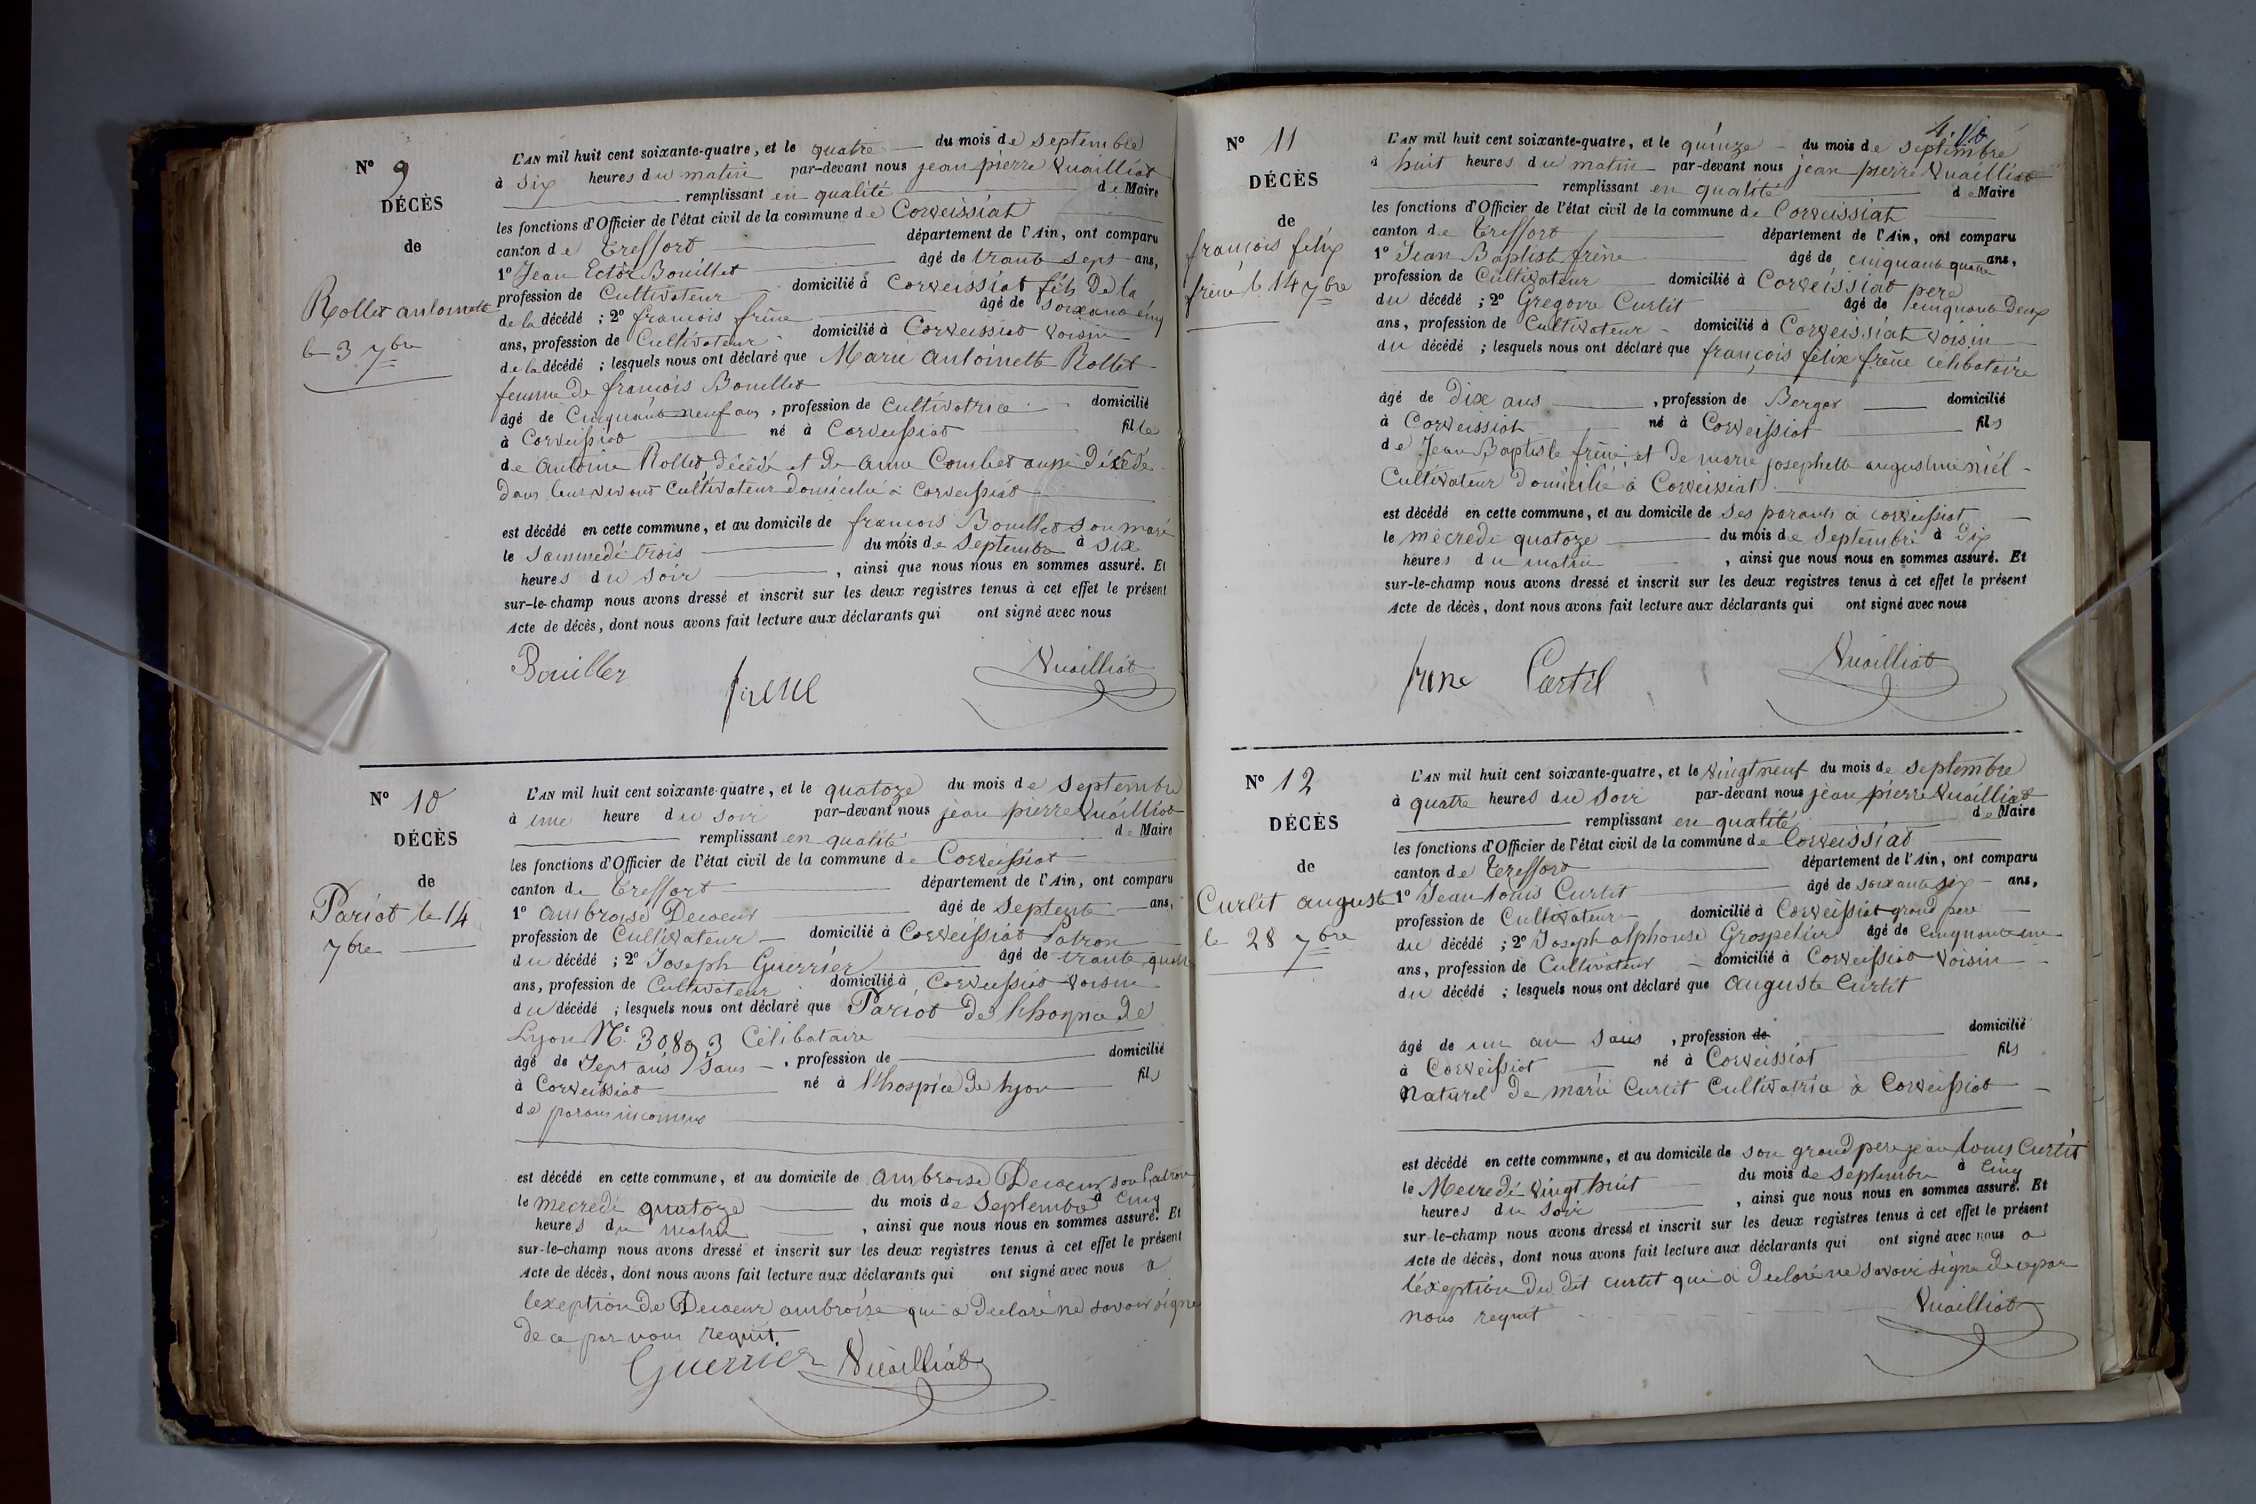 N° 9
DÉCÈS
de
Rollet antoinette
le 3 7bre
L'AN mil huit cent soixante-quatre, et le quatre du mois de septembre
à six heures du matin par-devant nous jean pierre Vuailliat
remplissant en qualité de Maire
les fonctions d'Officier de l'état civil de la commune de Corveissiat
canton de Treffort département de l'Ain, ont comparu
1° Jean Ector Bouillet âgé de trante sept ans,
profession de Cultivateur domicilié à Corveissiat fils de la
de la décédé ; 2° francois frêne âgé de soixante cinq
ans, profession de Cultivateur domicilié à Corveissiat voisin
de la décédé ; lesquels nous ont déclaré que Marie Antoinette Rollet
femme de francois Bouillet
âgé de Cinquante neuf ans, profession de Cultivatrice domicilié
à Corveissiat né à Corveissiat fille
de Antoine Rollet décédé et de anne Combet aussi décédé
dans leur vivant Cultivateur domicilié à Corveissiat
est décédé en cette commune, et au domicile de francois Bouillet son mari
le sammedi trois du mois de septembre à six
heures du soir , ainsi que nous nous en sommes assuré. Et
sur-le-champ nous avons dressé et inscrit sur les deux registres tenus à cet effet le présent
Acte de décès, dont nous avons fait lecture aux déclarants qui ont signé avec nous
Bouillet frene Vuailliat
N° 10
DÉCÈS
de
Pariot le 14
7bre
L'AN mil huit cent soixante-quatre, et le quatoze du mois de septembre
à une heure du soir par-devant nous jean pierre Vuailliat
remplissant en qualité de Maire
les fonctions d'Officier de l'état civil de la commune de Corveissiat
canton de Treffort département de l'Ain, ont comparu
1° ambroise Decoeur âgé de septente ans,
profession de Cultivateur domicilié à Corveissiat Patron
du décédé ; 2° Joseph Guerrier âgé de trante quatre
ans, profession de Cultivateur domicilié à Corveissiat voisin
du décédé ; lesquels nous ont déclaré que Pariot de lhospice de
Lyon N° 30893 Célibataire
âgé de Sept ans sans , profession de domicilié
à Corveissiat né à lhospice de lyon fils
de parans inconnus
est décédé en cette commune, et au domicile de ambroise Decoeur son Patron
le mecredi quatoze du mois de septembre à cinq
heures du matin , ainsi que nous nous en sommes assuré. Et
sur-le-champ nous avons dressé et inscrit sur les deux registres tenus à cet effet le présent
Acte de décès, dont nous avons fait lecture aux déclarants qui ont signé avec nous a
lexeption de Decoeur ambroise qui a declaré ne savoir signe
de ce par nous requit
Guerrier Vuailliat
N° 11
DÉCÈS
de
françois felix
frêne le 14 7bre
L'AN mil huit cent soixante-quatre, et le quinze du mois de septembre
à huit heures du matin par-devant nous jean pierre Vuailliat
remplissant en qualité de Maire
les fonctions d'Officier de l'état civil de la commune de Corveissiat
canton de Treffort département de l'Ain, ont comparu
1° Jean Baptist frêne âgé de cinquante quatre ans,
profession de Cultivateur domicilié à Corveissiat pere
du décédé ; 2° Gregoire Curtit âgé de cinquante deux
ans, profession de Cultivateur domicilié à Corveissiat voisin
du décédé ; lesquels nous ont déclaré que françois félix frêne celibataire
âgé de dix ans , profession de Berger domicilié
à Corveissiat né à Corveissiat fils
de Jean Baptiste frêne et de marie josephette augustine niel
Cultivateur domicilié à Corveissiat
est décédé en cette commune, et au domicile de ses parants à corveissiat
le mecredi quatoze du mois de septembre à dix
heures du matin , ainsi que nous nous en sommes assuré. Et
sur-le-champ nous avons dressé et inscrit sur les deux registres tenus à cet effet le présent
Acte de décès, dont nous avons fait lecture aux déclarants qui ont signé avec nous
frene Curtit Vuailliat
N° 12
DÉCÈS
de
Curlit august
le 28 7bre
L'AN mil huit cent soixante-quatre, et le vingt neuf du mois de septembre
à quatre heures du soir par-devant nous jean pierre Vuailliat
remplissant en qualité de Maire
les fonctions d'Officier de l'état civil de la commune de Corveissiat
canton de Treffort département de l'Ain, ont comparu
1° Jean louis Curtit âgé de soixante six ans,
profession de Cultivateur domicilié à Corveissiat grand pere
du décédé ; 2° Joseph alphonse Grospelier âgé de cinquante un
ans, profession de Cultivateur domicilié à Corveissiat voisin
du décédé ; lesquels nous ont déclaré que auguste Curtit
âgé de un an sans , profession de domicilié
à Corveissiat né à Corveissiat fils
naturel de marie Curtit Cultivatrice à Corveissiat
est décédé en cette commune, et au domicile de son grand pere jean louis Curtit
le Mecredi vingt huit du mois de septembre à cinq
heures du soir , ainsi que nous nous en sommes assuré. Et
sur-le-champ nous avons dressé et inscrit sur les deux registres tenus à cet effet le présent
Acte de décès, dont nous avons fait lecture aux déclarants qui ont signé avec nous a
l'exeption du dit curtit qui a declaré ne savoir signe de ce par
nous requit
Vuailliat